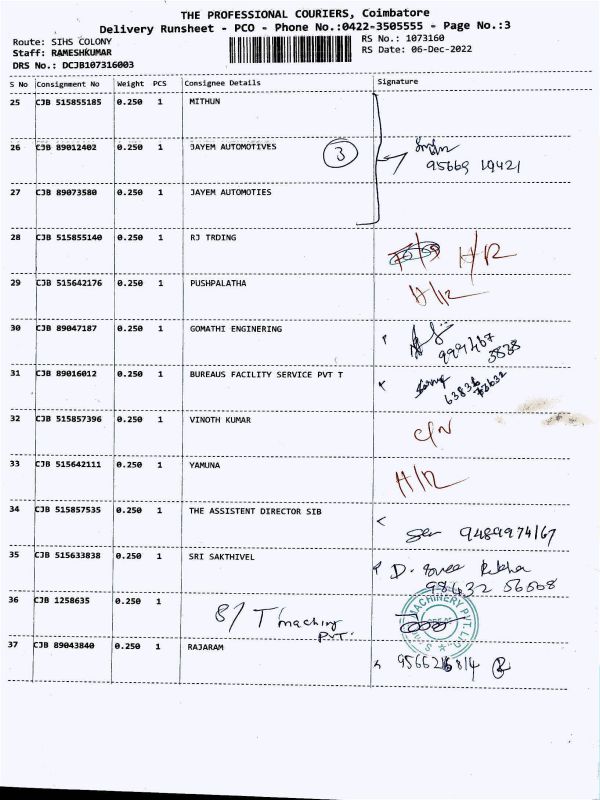 THE PROFESSIONAL COURIERS, Coimbatore
Delivery Runsheet - PCO - Phone No.:0422-3505555 - Page No.:3
Route: SIHS COLONY RS No.: 1073160
Staff: RAMESHKUMAR RS Date: 06-Dec-2022
DRS No.: DCJB107316003
S No Consignment No Weight PCS Consignee Details Signature
25 CJB 515855185 0.250 1 MITHUN
26 CJB 89012402 0.250 1 JAYEM AUTOMOTIVES 3
95669 10421
27 CJB 89073580 0.250 1 JAYEM AUTOMOTIES
28 CJB 515855140 0.250 1 RJ TRDING H/R
29 CJB 515642176 0.250 1 PUSHPALATHA H/R
30 CJB 89047187 0.250 1 GOMATHI ENGINERING
999467
3838
31 CJB 89016012 0.250 1 BUREAUS FACILITY SERVICE PVT T
63836
32 CJB 515857396 0.250 1 VINOTH KUMAR C/N
33 CJB 515642111 0.250 1 YAMUNA H/R
34 CJB 515857535 0.250 1 THE ASSISTENT DIRECTOR SIB
9489974167
35 CJB 515633838 0.250 1 SRI SAKTHIVEL D.
98432 56508
36 CJB 1258635 0.250 1
MACHINERY PVT. LTD
37 CJB 89043840 0.250 1 RAJARAM